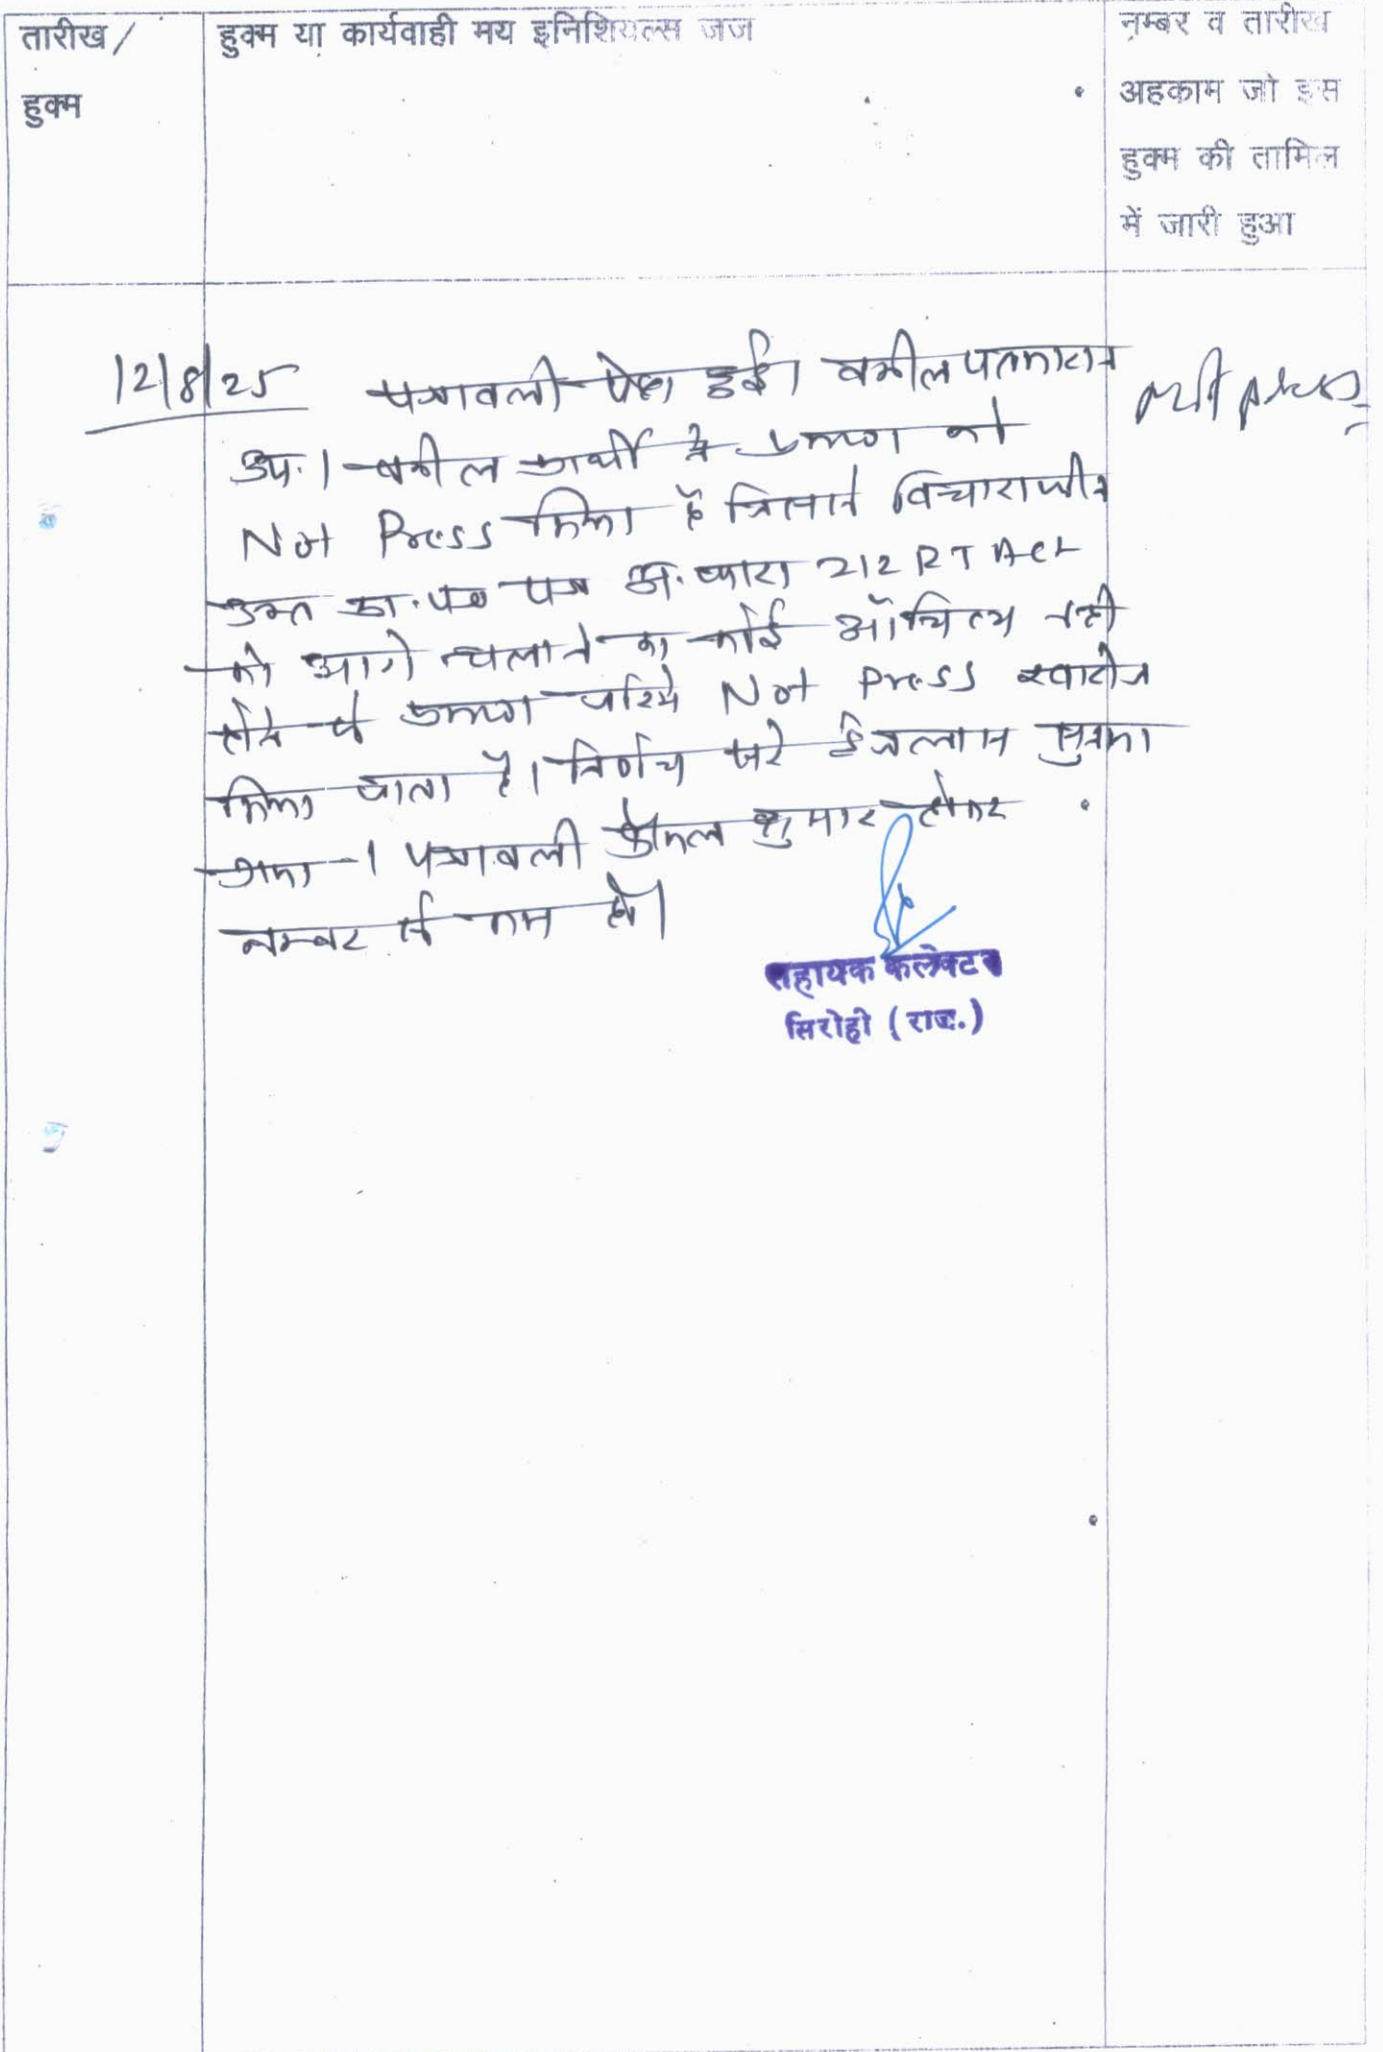 तारीख/
हुक्म
हुक्म या कार्यवाही मय इनिशियल्स जज
नम्बर व तारीख
अहकाम जो इस
हुक्म की तामिल
में जारी हुआ
12/8/25 पत्रावली पेश हुई। वकील पक्षकारान
उप.। वकील प्रार्थी ने प्रकरण को
Not Press किया है जिससे विचाराधीन
उक्त प्रा. पत्र अ. धारा 212 RT Act
को आगे चलाने का कोई औचित्य नही
होने से प्रकरण जरिये Not Press खारीज
किया जाता है। निर्णय सरे ईजलास सुनाया
गया। पत्रावली फैसल शुमार होकर
नम्बर से कम हो।
सहायक कलेक्टर
सिरोही (राज.)